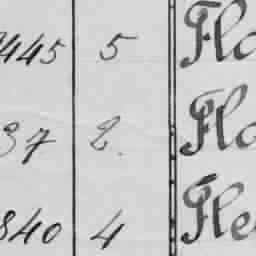 445 5 Flo
37 2. Flo
840 4 Fle